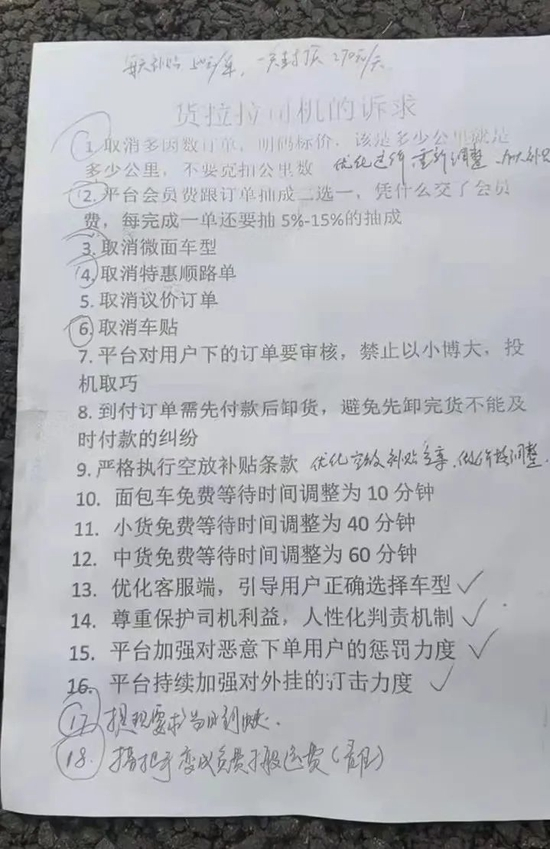 每天补贴 50元/单, 一天封顶 270元/天
货拉拉司机的诉求
1. 取消多因数订单，明码标价，该是多少公里就是
多少公里，不要克扣公里数 优化逻辑 重新调整
2. 平台会员费跟订单抽成二选一，凭什么交了会员
费，每完成一单还要抽 5%-15%的抽成
3. 取消微面车型
4. 取消特惠顺路单
5. 取消议价订单
6. 取消车贴
7. 平台对用户下的订单要审核，禁止以小博大，投
机取巧
8. 到付订单需先付款后卸货，避免先卸完货不能及
时付款的纠纷
9. 严格执行空放补贴条款 优化空放补贴 调整.
10. 面包车免费等待时间调整为 10 分钟
11. 小货免费等待时间调整为 40 分钟
12. 中货免费等待时间调整为 60 分钟
13. 优化客服端，引导用户正确选择车型 ✓
14. 尊重保护司机利益，人性化判责机制 ✓
15. 平台加强对恶意下单用户的惩罚力度 ✓
16. 平台持续加强对外挂的打击力度 ✓
17. 提现要求当日到账.
18. 变成免费搬运费